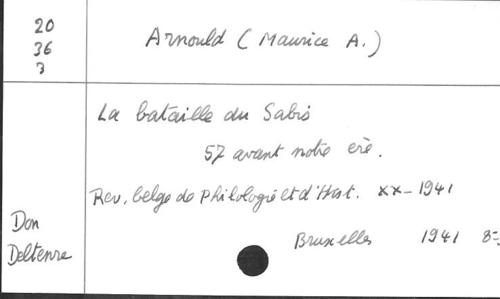 20
36
3
Arnould (Maurice A.)
La bataille du Sabis
57 avant notre ère.
Rev. belge de Philologie et d'Hist. XX-1941
Don
Deltenre
Bruxelles 1941 8°